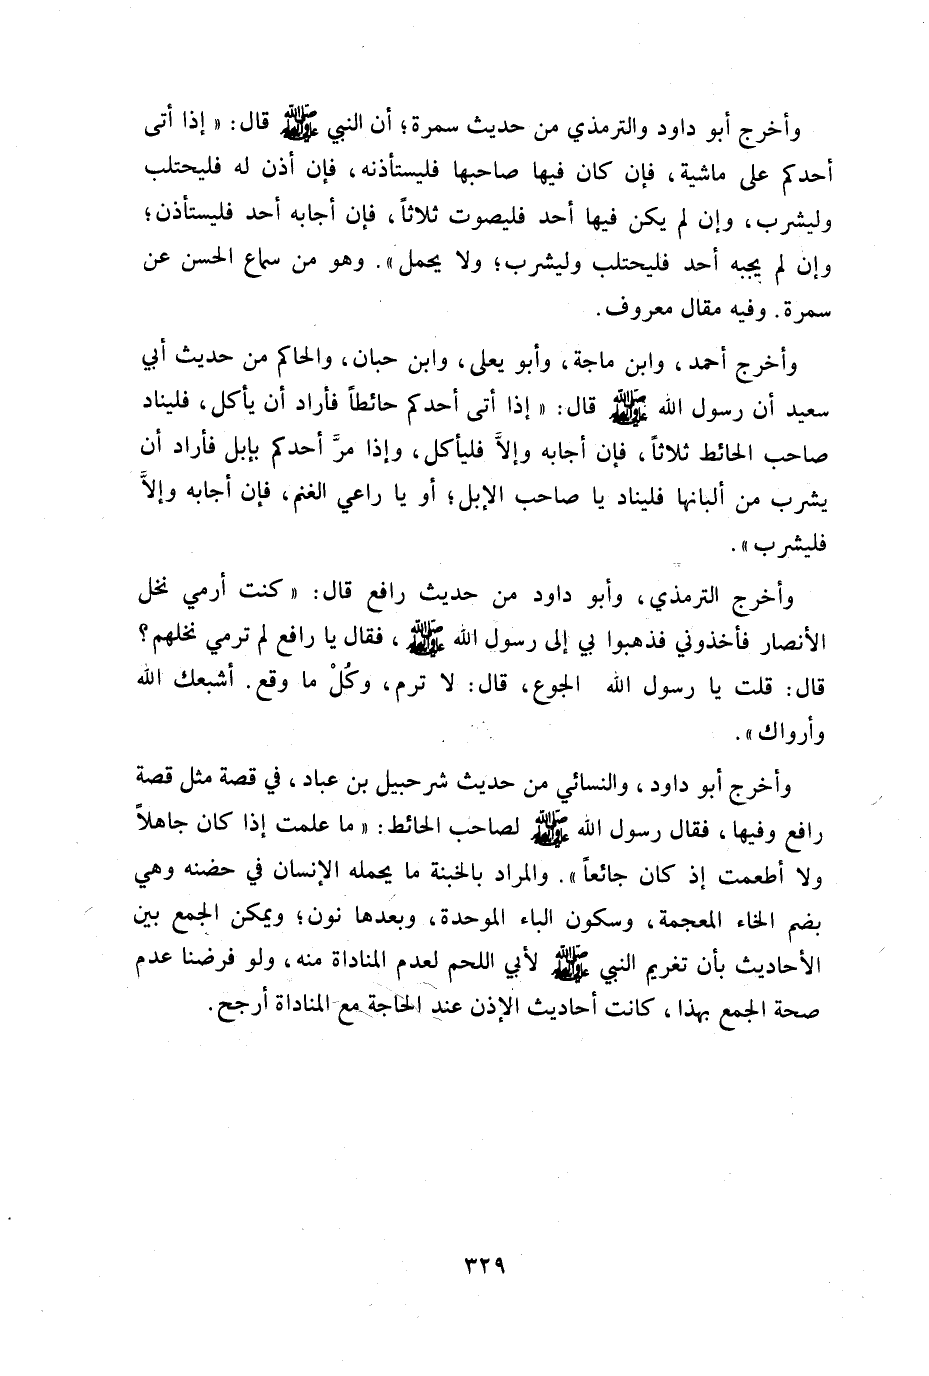 وأخرج أبو داود والترمذي من حديث سمرة؛ أن النبي ﷺ قال: « إذا أتى
أحدكم على ماشية، فإن كان فيها صاحبها فليستأذنه، فإن أذن له فليحتلب
وليشرب، وإن لم يكن فيها أحد فليصوت ثلاثاً، فإن أجابه أحد فليستأذن؛
وإن لم يجبه أحد فليحتلب وليشرب؛ ولا يحمل». وهو من سماع الحسن عن
سمرة. وفيه مقال معروف.
وأخرج أحمد، وابن ماجة، وأبو يعلى، وابن حبان، والحاكم من حديث أبي
سعيد أن رسول الله ﷺ قال: « إذا أتى أحدكم حائطاً فأراد أن يأكل، فليناد
صاحب الحائط ثلاثاً، فإن أجابه وإلاَّ فليأكل، وإذا مرَّ أحدكم بإبل فأراد أن
يشرب من ألبانها فليناد يا صاحب الإبل؛ أو يا راعي الغنم، فإن أجابه وإلاَّ
فليشرب».
وأخرج الترمذي، وأبو داود من حديث رافع قال: « كنت أرمي نخل
الأنصار فأخذوني فذهبوا بي إلى رسول الله ﷺ، فقال يا رافع لم ترمي نخلهم؟
قال: قلت يا رسول الله الجوع، قال: لا ترم، وكُلْ ما وقع. أشبعك الله
وأرواك».
وأخرج أبو داود، والنسائي من حديث شرحبيل بن عباد، في قصة مثل قصة
رافع وفيها، فقال رسول الله ﷺ لصاحب الحائط: « ما علمت إذا كان جاهلاً
ولا أطعمت إذ كان جائعاً». والمراد بالخبنة ما يحمله الإنسان في حضنه وهي
بضم الخاء المعجمة، وسكون الباء الموحدة، وبعدها نون؛ ويمكن الجمع بين
الأحاديث بأن تغريم النبي ﷺ لأبي اللحم لعدم المناداة منه، ولو فرضنا عدم
صحة الجمع بهذا، كانت أحاديث الإذن عند الحاجة مع المناداة أرجح.
٣٢٩